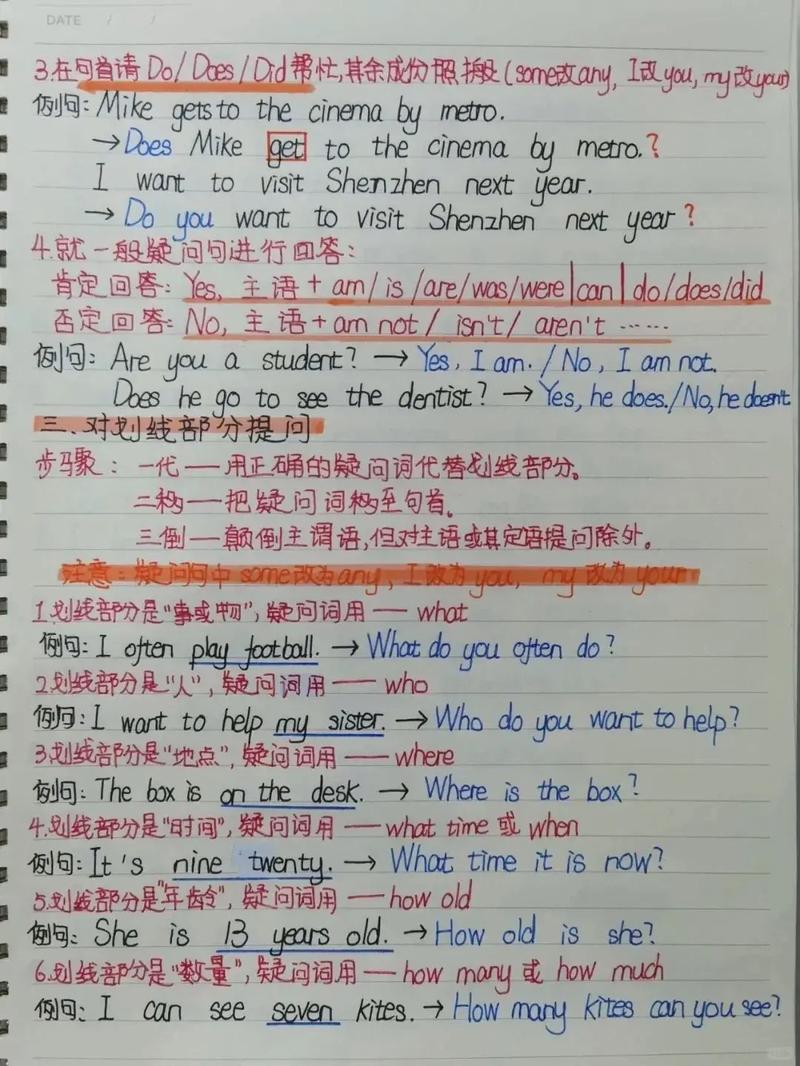 DATE / /
3.在句首请 Do/Does/Did帮忙,其余成份照搬(some改any, I改you, my改your)
例句: Mike gets to the cinema by metro.
→Does Mike get to the cinema by metro.?
I want to visit Shenzhen next year.
→ Do you want to visit Shenzhen next year?
4.就一般疑问句进行回答:
肯定回答: Yes, 主语 + am/ is /are/was/were|can| do/does/did
否定回答: No, 主语+am not/ isn't/ aren't ……
例句: Are you a student? → Yes, I am. / No, I am not.
Does he go to see the dentist? → Yes, he does./No, he doesn't
三、对划线部分提问
步骤: 一代——用正确的疑问词代替划线部分。
二移——把疑问词移至句首。
三倒——颠倒主谓语,但对主语或其定语提问除外。
注意:疑问句中some改为any, I改为you, my改为your
1.划线部分是"事或物",疑问词用——what
例句: I often play football. → What do you often do?
2.划线部分是"人",疑问词用——who
例句: I want to help my sister. → Who do you want to help?
3.划线部分是"地点",疑问词用——where
例句: The box is on the desk. → Where is the box?
4.划线部分是"时间",疑问词用——what time 或 when
例句: It's nine twenty. → What time it is now?
5.划线部分是"年龄",疑问词用——how old
例句: She is 13 years old. → How old is she?
6.划线部分是"数量",疑问词用——how many 或 how much
例句: I can see seven kites. → How many kites can you see?